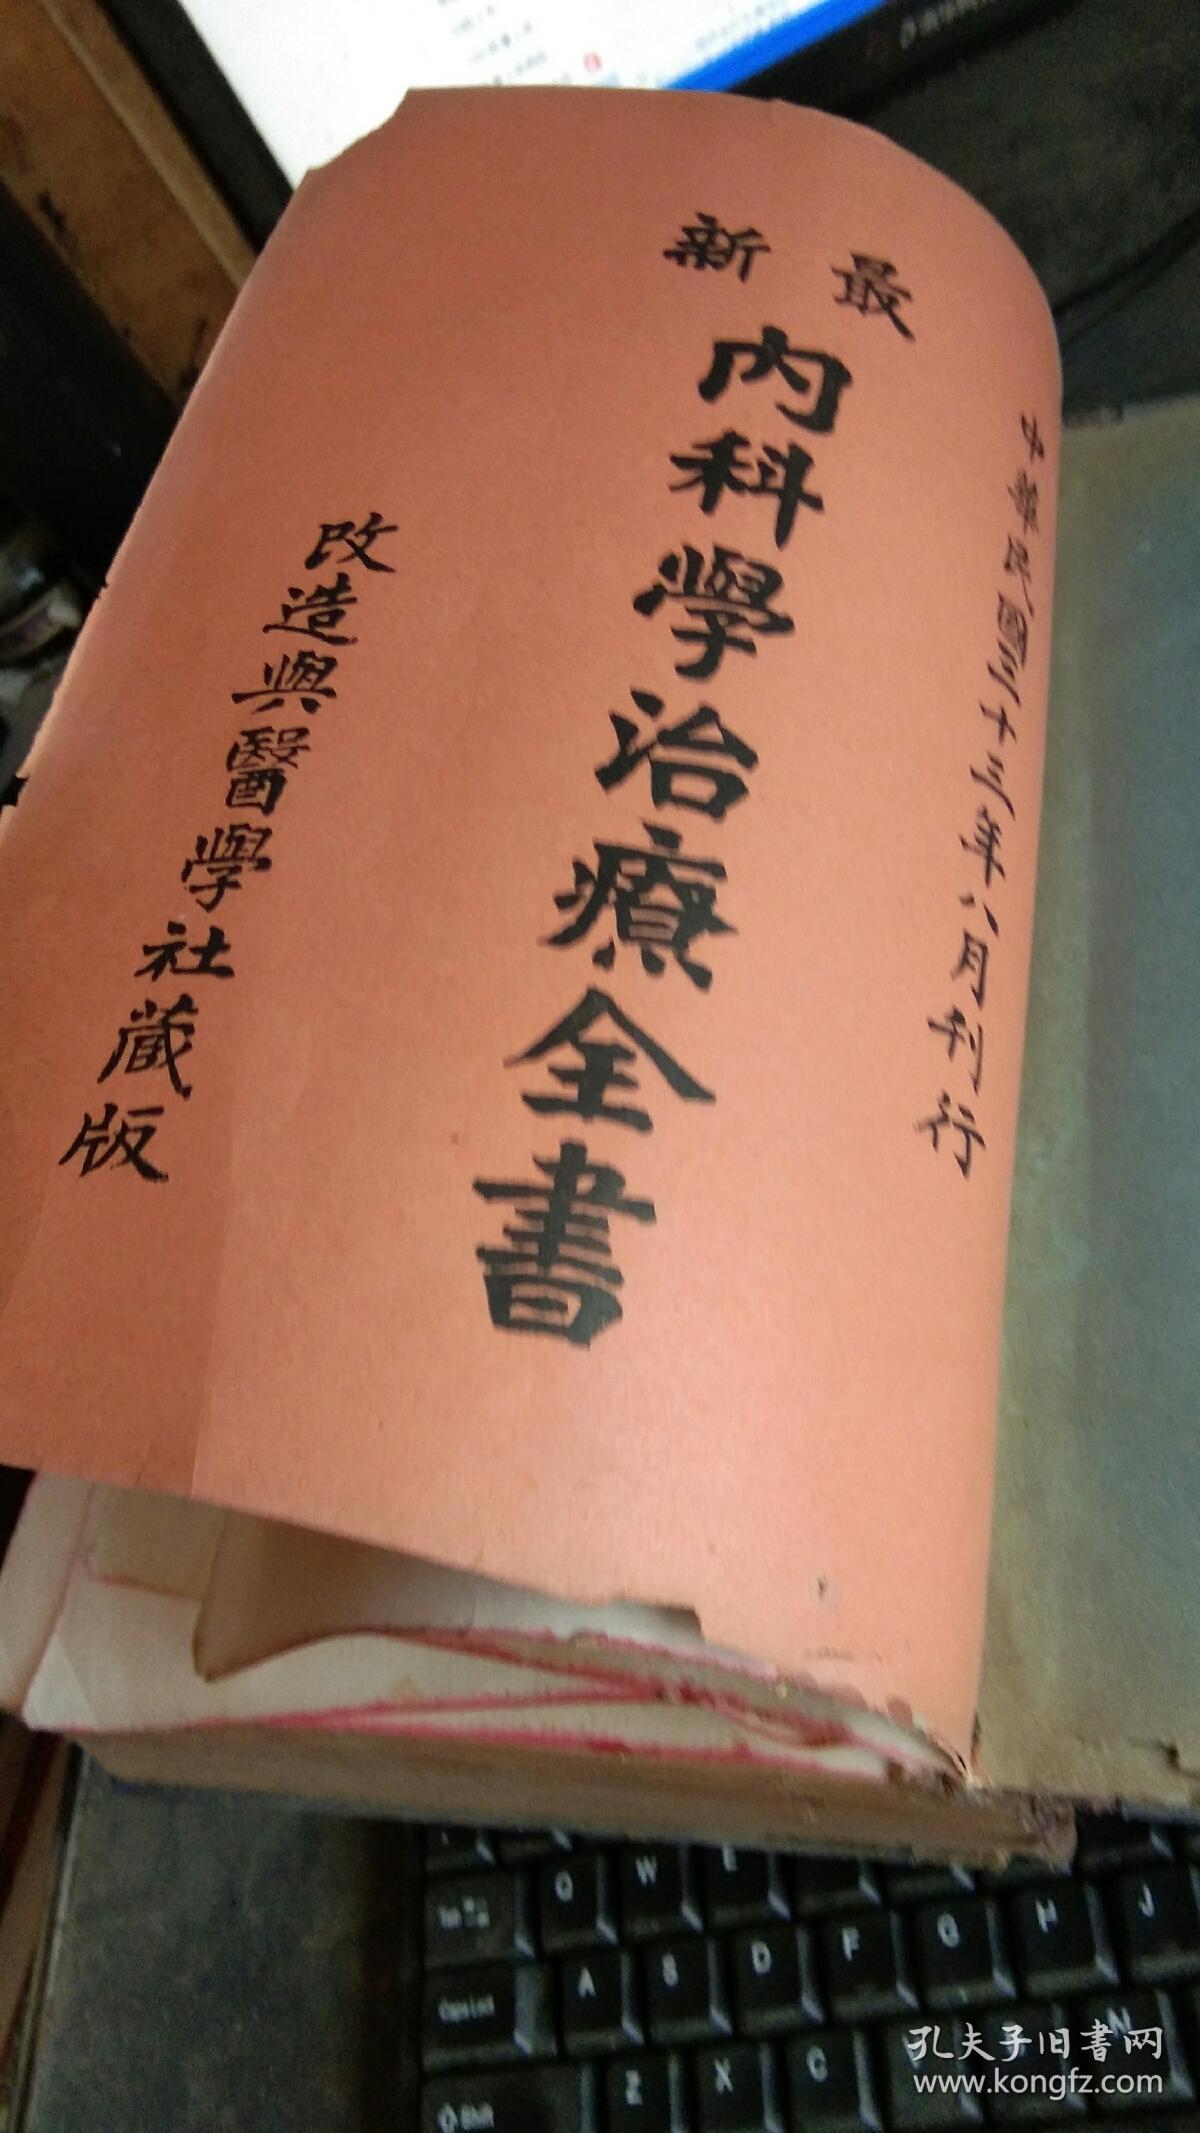 中華民國三十三年八月刊行
最新
內科學治療全書
改造與醫學社藏版
Q W E
A S D F G H J
Z X C N
孔夫子旧書网
www.kongfz.com